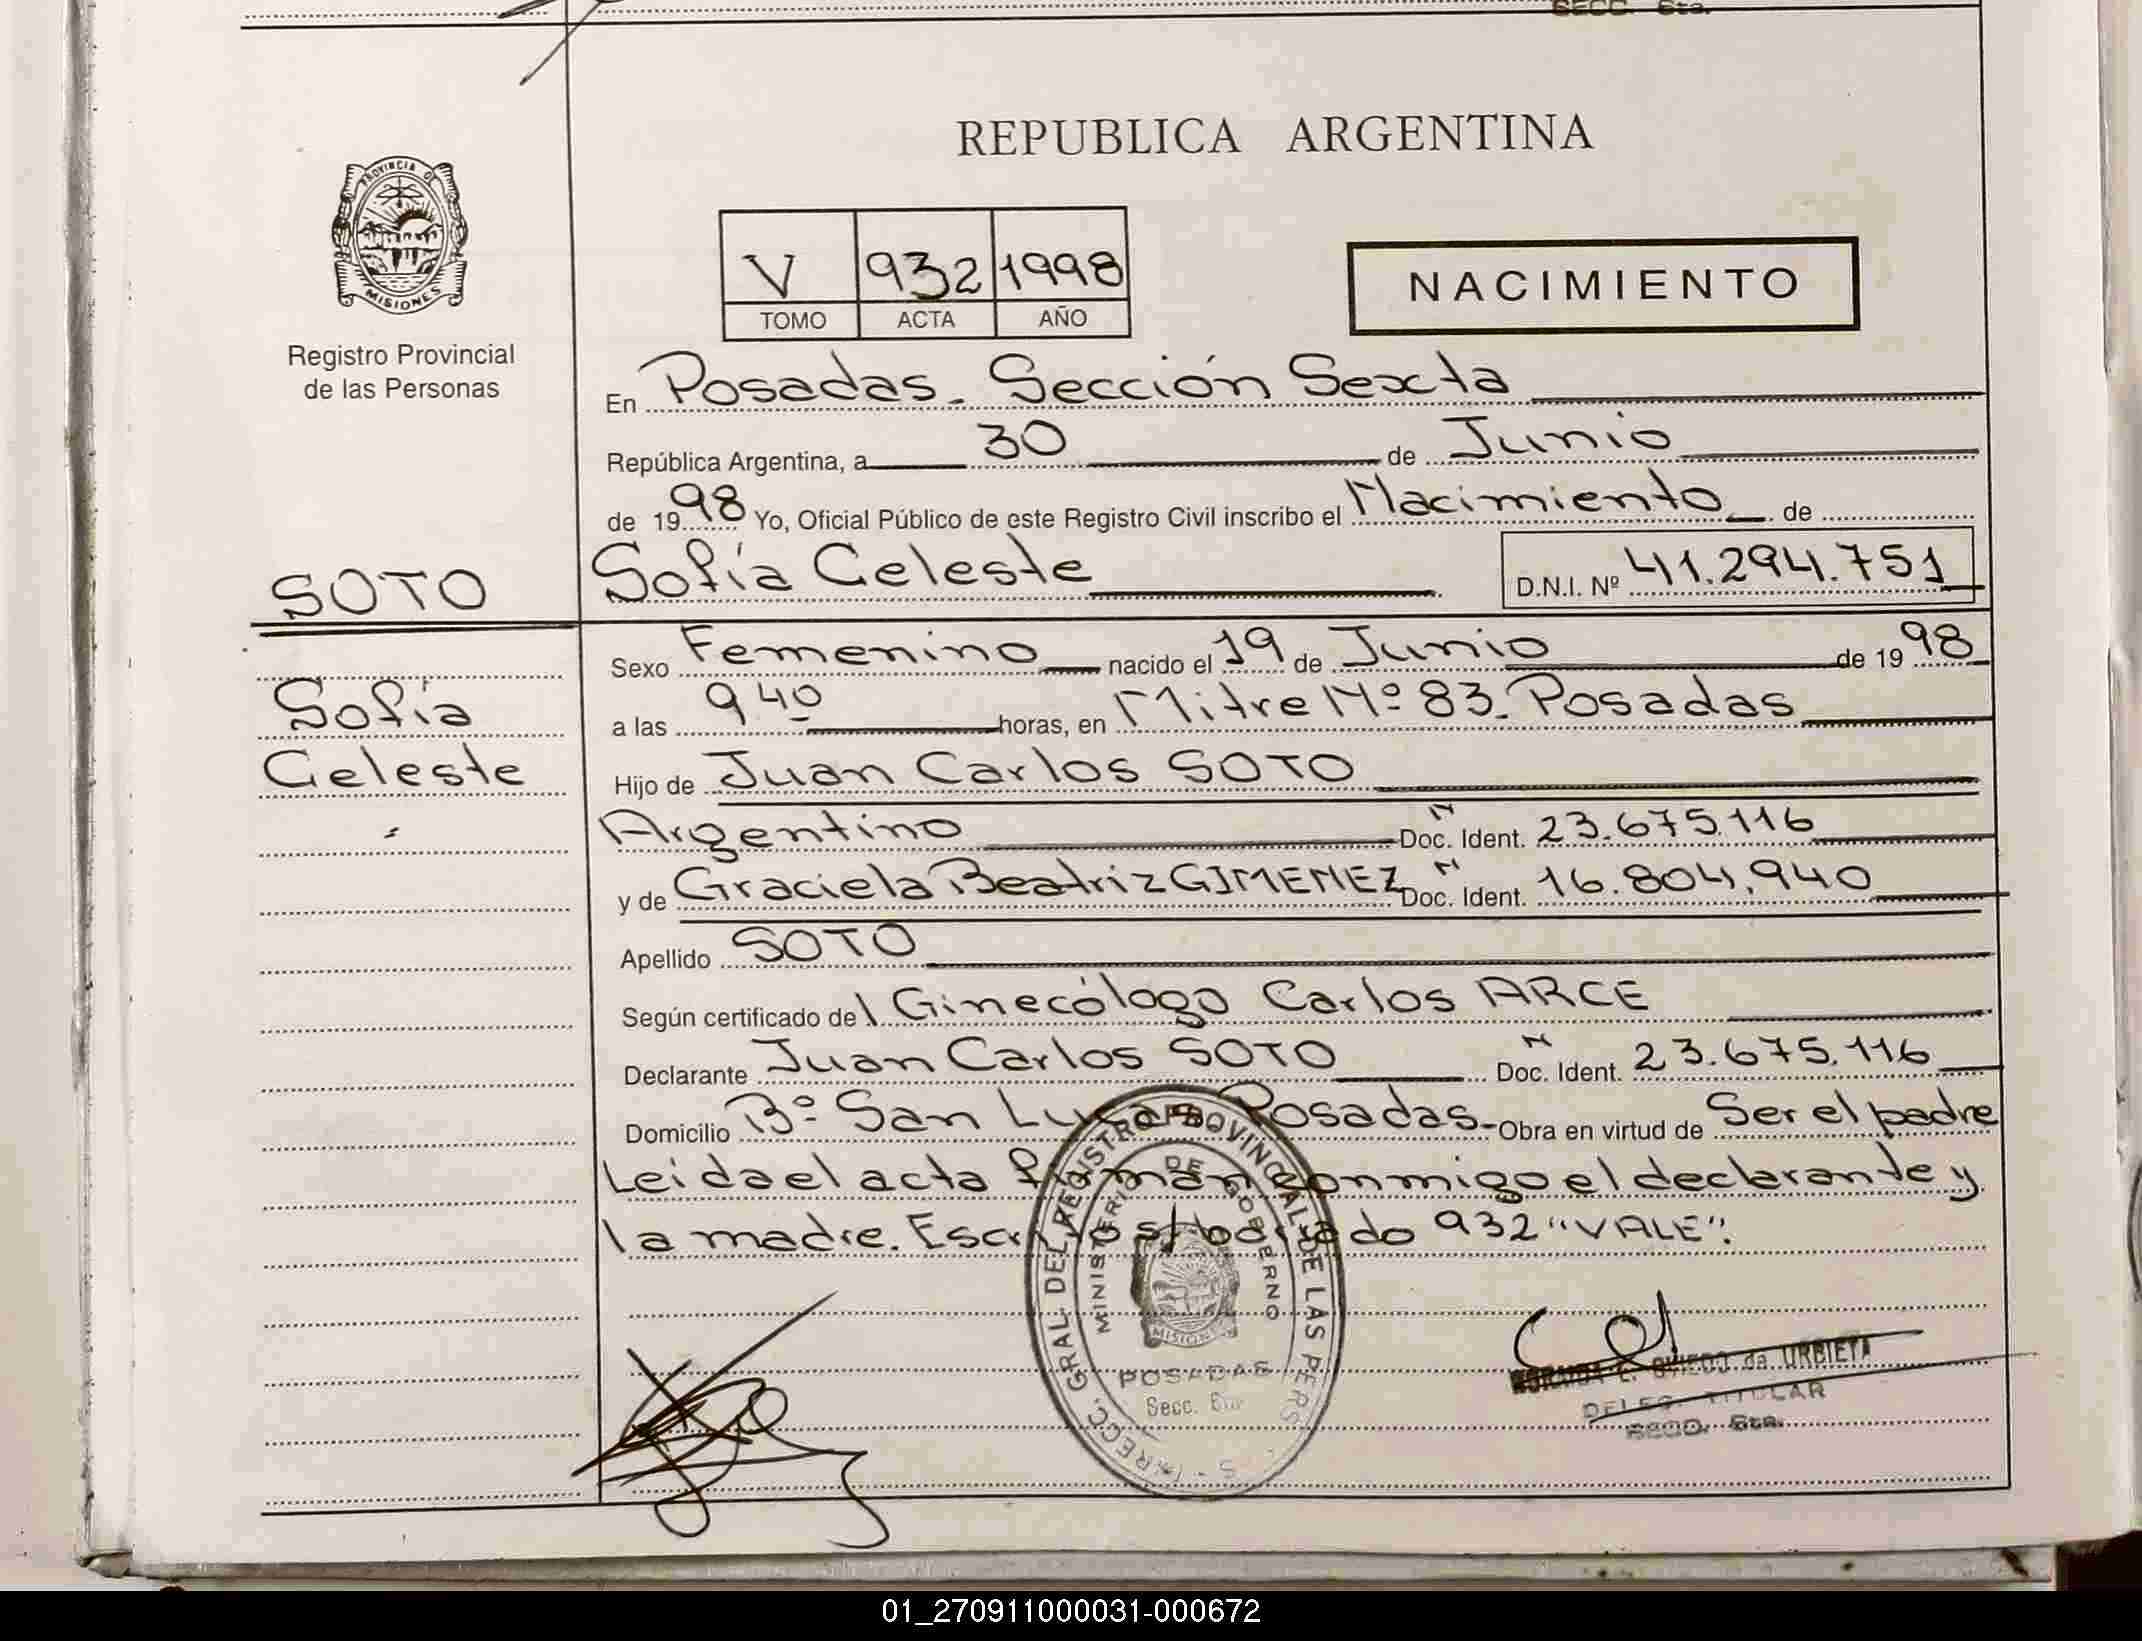 SECC. 6ta.
REPUBLICA ARGENTINA
PROVINCIA D
MISIONES
Registro Provincial
de las Personas
V 932 1998
TOMO ACTA AÑO
NACIMIENTO
En Posadas. Sección Sexta
República Argentina, a 30 de Junio
de 1998 Yo, Oficial Público de este Registro Civil inscribo el Nacimiento de
SOTO
Sofía Celeste D.N.I. Nº 41.294.751
Sexo Femenino nacido el 19 de Junio de 1998
Sofía
Celeste
a las 9 40 horas, en Mitre Nº 83. Posadas
Hijo de Juan Carlos SOTO
Argentino Doc. Ident. N 23.675.116
y de Graciela Beatriz GIMENEZ Doc. Ident. N 16.804.940
Apellido SOTO
Según certificado del Ginecólogo Carlos ARCE
Declarante Juan Carlos SOTO Doc. Ident. N 23.675.116
Domicilio Bº San Lucas Posadas- Obra en virtud de Ser el padre
Leida el acta firman conmigo el declarante y
la madre. Escrito s/ borrado 932 "VALE".
DIRECC. GRAL. DEL REGISTRO PROVINCIAL DE LAS PERS
MINISTERIO DE GOBIERNO
MISIONES
POSADAS
Secc. 6ta
E. OVIEDO de URBIETA
DELEG. TITULAR
SECC. 6ta.
01_270911000031-000672